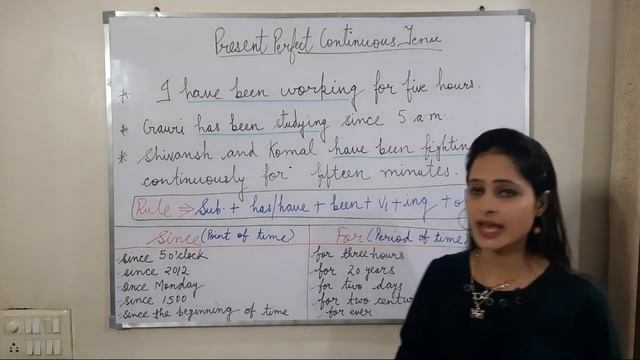 Present Perfect Continuous Tense
* I have been working for five hours.
* Gauri has been studying since 5 a.m.
* Shivansh and Komal have been fighting
continuously for fifteen minutes.
Rule ⇒ Sub. + has/have + been + V₁ + ing + o
Since (Point of time)
since 5 o'clock
since 2012
since Monday
since 1500
since the beginning of time
For (Period of time)
for three hours
for 20 years
for two days
for two centur
for ever